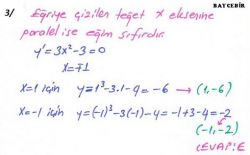 BAYCEBİR
3/ Eğriye çizilen teğet x eksenine
paralel ise eğim sıfırdır.
y'=3x²-3=0
x=∓1
x=1 için y=1³-3.1-4=-6 → (1,-6)
x=-1 için y=(-1)³-3(-1)-4=-1+3-4=-2
(-1,-2)
CEVAP:E